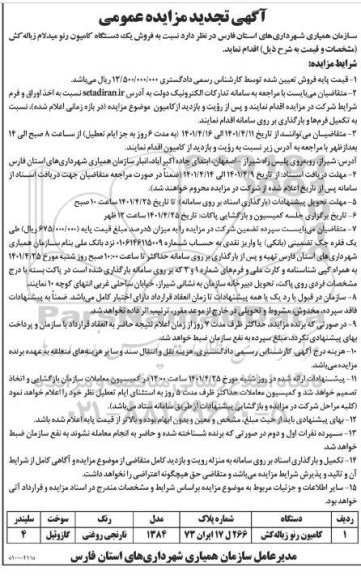 آگهی تجدید مزایده عمومی
سازمان همیاری شهرداری‌های استان فارس در نظر دارد نسبت به فروش یک دستگاه کامیون رنو میدلام زباله‌کش
(مشخصات و قیمت به شرح ذیل) اقدام نماید.
شرایط مزایده:
۱- قیمت پایه فروش تعیین شده توسط کارشناس رسمی دادگستری ۱۳/۵۰۰/۰۰۰/۰۰۰ ریال می‌باشد.
۲- متقاضیان می‌بایست با مراجعه به سامانه تدارکات الکترونیک دولت به آدرس setadiran.ir نسبت به اخذ اوراق و فرم
شرایط شرکت در مزایده اقدام نمایند و پس از رؤیت و بازدید از کامیون موضوع مزایده (در بازه زمانی اعلام شده)، نسبت
به تکمیل فرم‌ها و بارگذاری بر روی سامانه اقدام نمایند.
۳- متقاضیان می‌توانند از تاریخ ۱۴۰۱/۴/۱۱ الی ۱۴۰۱/۴/۱۶ (به مدت ۶ روز به جز ایام تعطیل) از ساعت ۸ صبح الی ۱۴
بعدازظهر با مراجعه به آدرس زیر نسبت به رؤیت و بازدید از کامیون اقدام نمایند.
آدرس: شیراز، روبه‌روی پلیس راه شیراز - اصفهان، ابتدای جاده اکبرآباد، انبار سازمان همیاری شهرداری‌های استان فارس
۴- مهلت دریافت اسناد: از تاریخ ۱۴۰۱/۴/۹ الی ۱۴۰۱/۴/۱۴ (ضمناً در صورت مراجعه متقاضیان جهت دریافت اسناد از
سامانه پس از تاریخ اعلام شده از شرکت در مزایده محروم خواهند شد).
۵- مهلت تحویل پیشنهادات (بارگذاری اسناد بر روی سامانه): تا تاریخ ۱۴۰۱/۴/۲۵ ساعت ۱۰ صبح
۶- تاریخ برگزاری جلسه کمیسیون و بازگشایی پاکات: تاریخ ۱۴۰۱/۴/۲۵ ساعت ۱۲ ظهر
۷- متقاضیان می‌بایست سپرده تضمین شرکت در مزایده را به میزان ۵ درصد مبلغ قیمت پایه (۶۷۵/۰۰۰/۰۰۰ ریال) طی
یک فقره چک تضمینی (بانکی) یا واریز نقدی به حساب شماره ۰۱۰۶۱۴۶۱۱۵۰۰۹ نزد بانک ملی بنام سازمان همیاری
شهرداری‌های استان فارس تهیه و پس از بارگذاری بر روی سامانه حداکثر تا ساعت ۱۰:۰۰ صبح روز شنبه مورخ ۱۴۰۱/۴/۲۵
به همراه کپی شناسنامه و کارت ملی و فرم‌های شماره ۱ و ۳ که بر روی سامانه بارگذاری شده است در پاکت بسته با درج
مشخصات فردی روی پاکت، تحویل دبیرخانه سازمان به نشانی شیراز، خیابان ساحلی غربی انتهای کوچه ۱۰ نمایند.
۸- سازمان در قبول یا رد یک یا همه پیشنهادات تا زمان انعقاد قرارداد دارای اختیار کامل می‌باشد. ضمناً به پیشنهادات
فاقد سپرده، مخدوش، مشروط و تحویلی در خارج از موعد مقرر، ترتیب اثر داده نخواهد شد.
۹- در صورتی که برنده مزایده، حداکثر ظرف مدت ۷ روز از زمان اعلام نتیجه حاضر به انعقاد قرارداد با سازمان و پرداخت
بهای پیشنهادی نگردد، مبلغ سپرده به نفع سازمان ضبط خواهد شد.
۱۰- هزینه درج آگهی، کارشناس رسمی دادگستری، هزینه نقل و انتقال سند و سایر هزینه‌های متعلقه به عهده برنده
مزایده می‌باشد.
۱۱- پیشنهادات ارائه شده در روز شنبه مورخ ۱۴۰۱/۴/۲۵ ساعت ۱۲:۰۰ در کمیسیون معاملات سازمان بازگشایی و اتخاذ
تصمیم خواهد شد و کمیسیون معاملات حداکثر ظرف مدت ۵ روز به استثنای ایام تعطیل نظر خود را اعلام خواهد نمود
(کلیه مراحل شرکت در مزایده و بازگشایی پیشنهادات از طریق سامانه ستاد می‌باشد).
۱۲- بهای پیشنهادی باید از حیث مبلغ، مشخص و معین و بدون ابهام بوده و بالاتر از قیمت پایه اعلام شده باشد.
۱۳- سپرده نفرات اول و دوم در صورتی که برنده شناخته شده و حاضر به انجام معامله نشوند به نفع سازمان ضبط
خواهد شد.
۱۴- تکمیل و بارگذاری اسناد بر روی سامانه به منزله رویت و بازدید کامل متقاضی از موضوع مزایده و آگاهی کامل از شرایط
آن و تائید و پذیرش شرایط مزایده می‌باشد و متقاضی حق هیچگونه اعتراضی را نخواهد داشت.
۱۵- سایر اطلاعات و جزئیات مربوط به موضوع مزایده براساس شرایط و مشخصات مندرج در اسناد مزایده و قرارداد آتی
خواهد بود.
ردیف دستگاه شماره پلاک مدل رنگ سوخت سیلندر
۱ کامیون رنو زباله‌کش ۲۶۶ ل ۱۷ ایران ۷۳ ۱۳۸۴ نارنجی روغنی گازوئیل ۴
مدیرعامل سازمان همیاری شهرداری‌های استان فارس